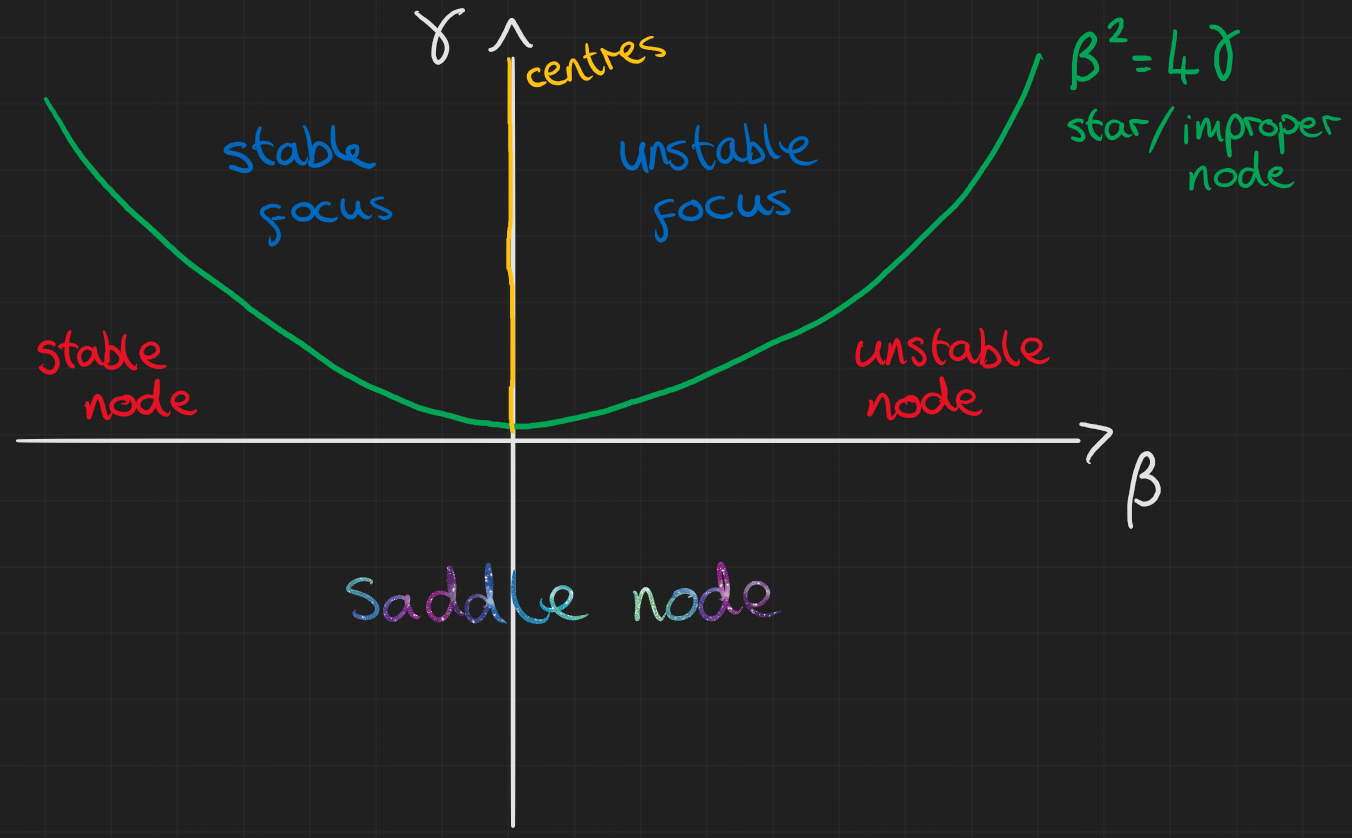 γ
centres
β² = 4γ
star/improper
node
stable
focus
unstable
focus
stable
node
unstable
node
β
Saddle node